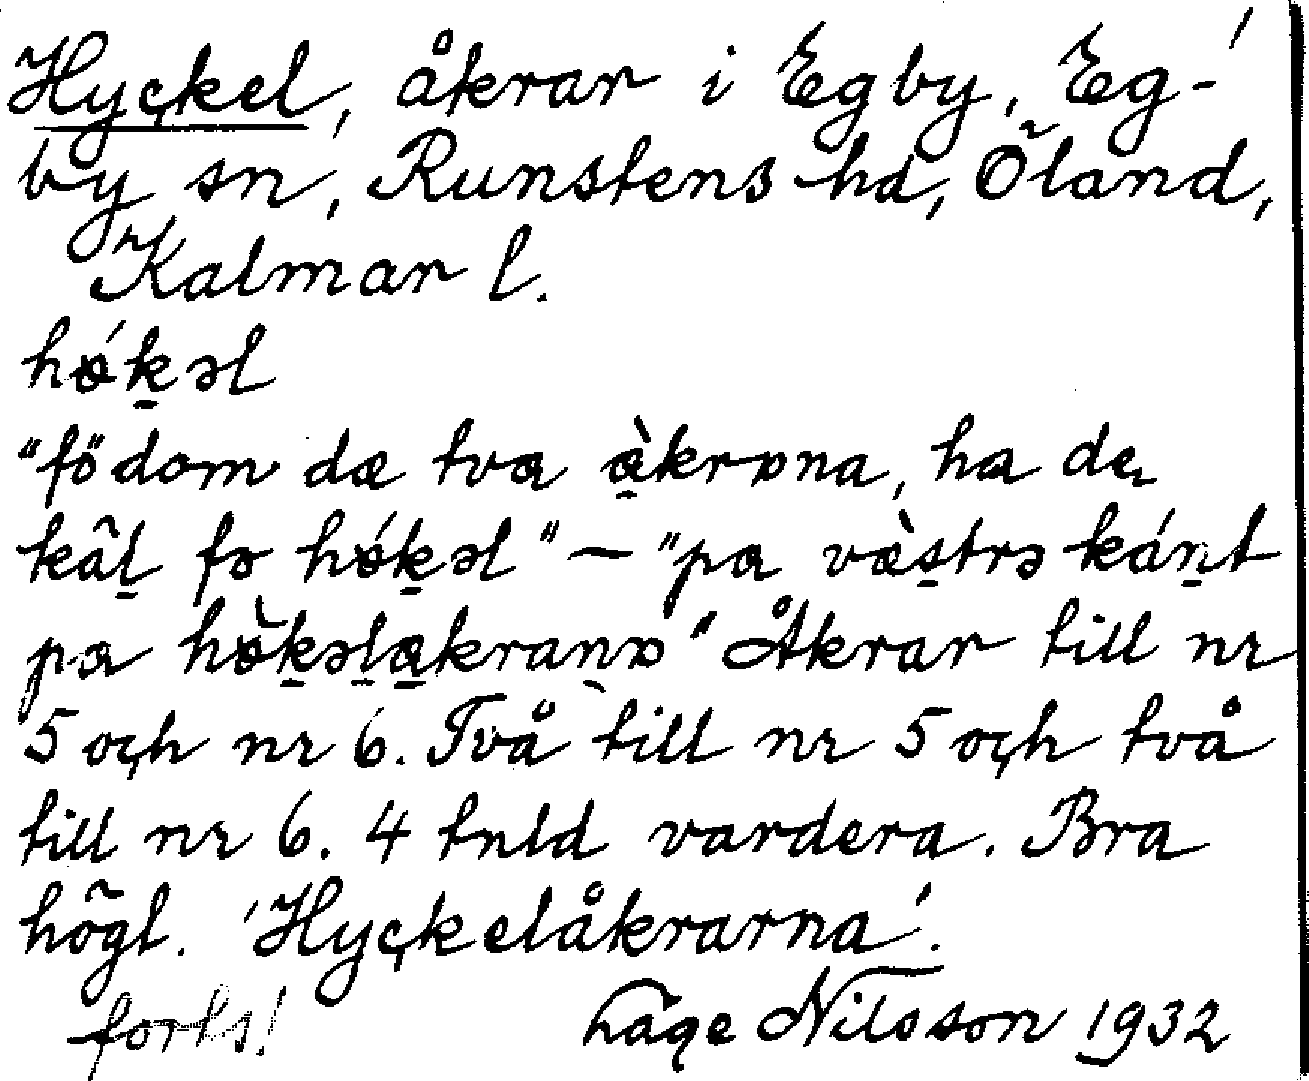 Hyckel, åkrar i Egby, Eg-
by sn, Runstens hd, Öland,
Kalmar l.
hǿk̠əl
"födom dæ tvɑ ɑ̀krɒna, ha de
kâl̠ fo hǿk̠əl" — "pɑ væ̀s̠trə kán̠t
pɑ hø̀k̠əl̠ɑ̠kran̠ɒ" Åkrar till nr
5 och nr 6. Två till nr 5 och två
till nr 6. 4 tnld vardera. Bra
högt. 'Hyckelåkrarna'.
forts! Håge Nilsson 1932